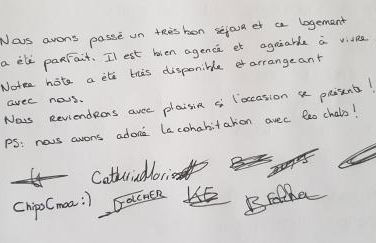 Nous avons passé un très bon séjour et ce logement
a été parfait. Il est bien agencé et agréable à vivre
Notre hôte a été très disponible et arrangeant
avec nous.
Nous Reviendrons avec plaisir si l'occasion se présente !
PS: nous avons adoré la cohabitation avec les chats !